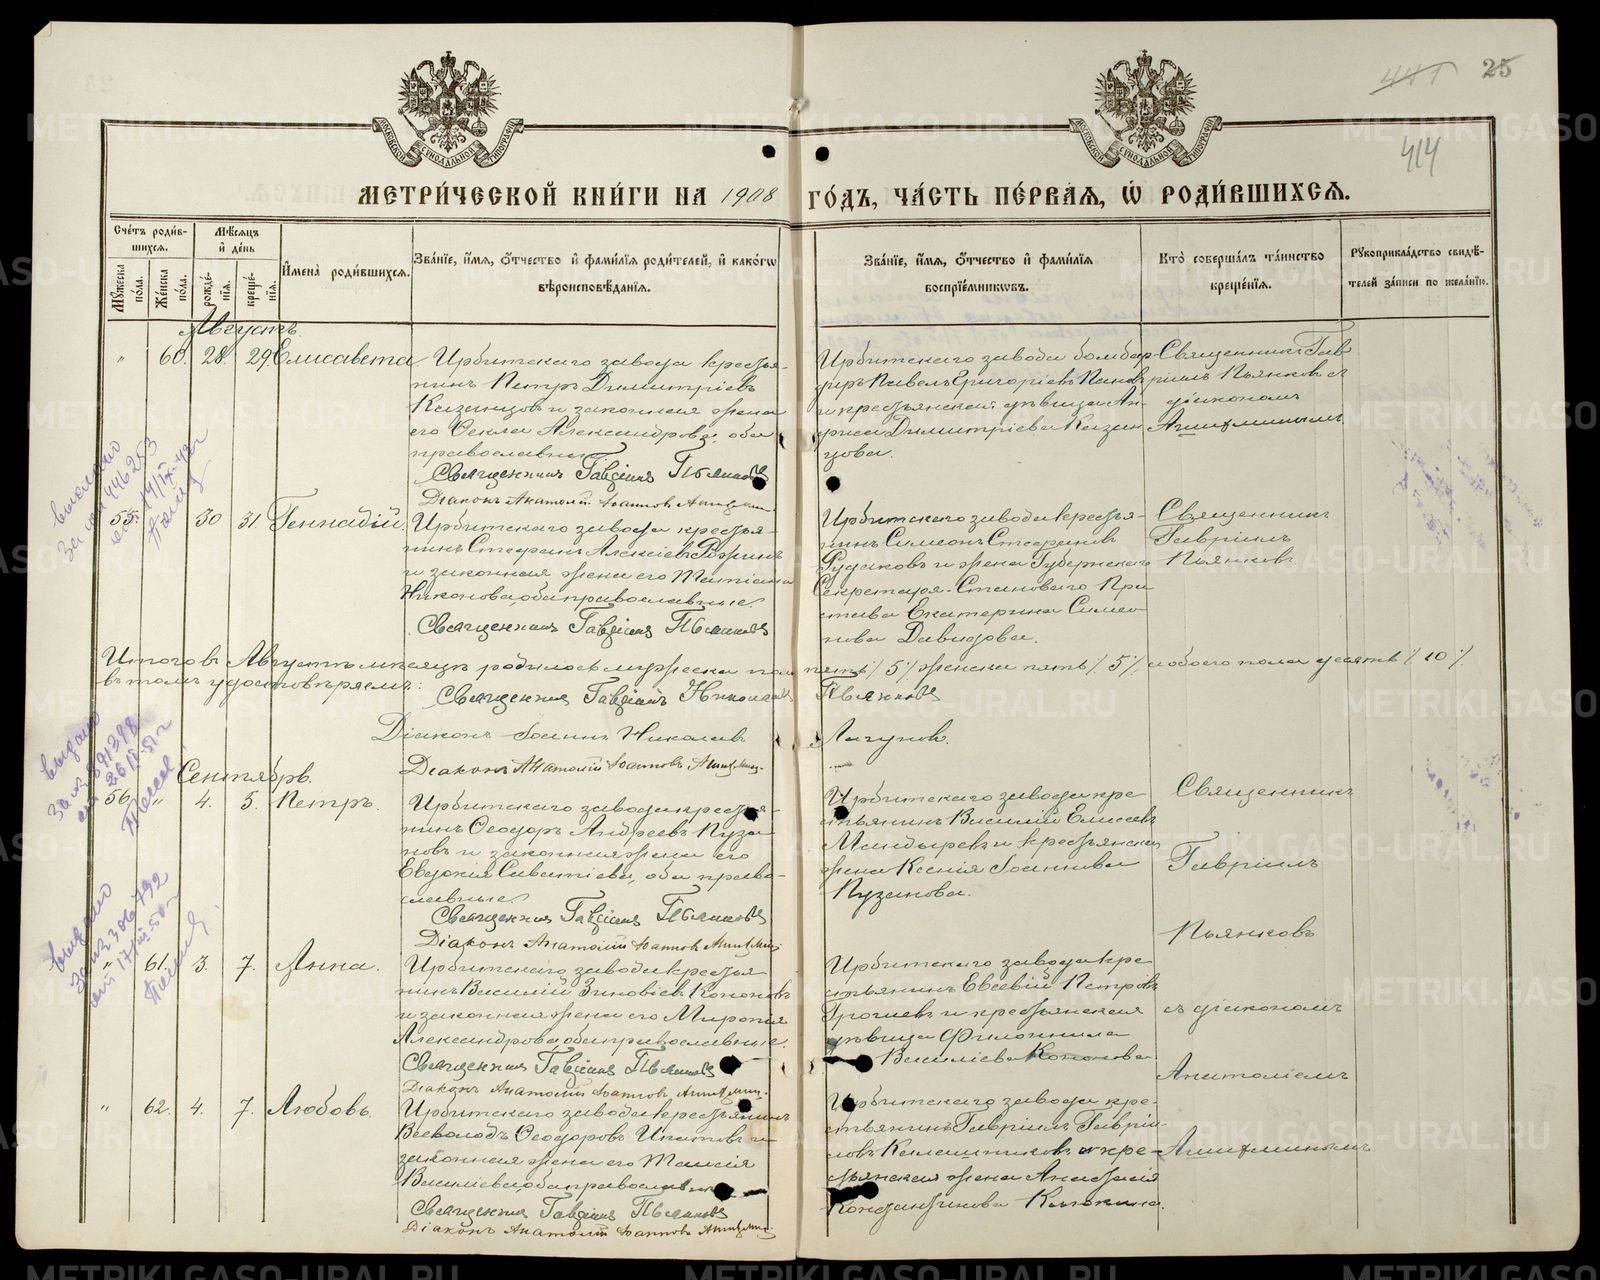 441 25
414
МОСКОВСКОЙ СѴНОДАЛЬНОЙ ТИПОГРАФІИ
МОСКОВСКОЙ СѴНОДАЛЬНОЙ ТИПОГРАФІИ
МЕТРИ́ЧЕСКОЙ КНИ́ГИ НА 1908 ГО́ДЪ, ЧА́СТЬ ПЕ́РВАѦ, Ѡ҆ РОДИ́ВШИХСѦ.
Сче́тъ роди́в-
шихсѧ.
Мꙋ́жеска по́ла.
Же́нска по́ла.
Мѣ́сѧцъ
и҆ де́нь
рожде́-
нїѧ.
креще́-
нїѧ.
И҆мена̀ роди́вшихсѧ.
Зва́нїе, и҆́мѧ, ѻ҆́тчество и҆ фами́лїѧ роди́телей, и҆ како́гѡ
вѣроисповѣ́данїѧ.
Зва́нїе, и҆́мѧ, ѻ҆́тчество и҆ фами́лїѧ
воспрїе́мникѡвъ.
Кто̀ соверша́лъ та́инство
креще́нїѧ.
Рꙋкоприкла́дство свидѣ́-
телей за́писи по жела́нїю.
Августъ.
" 60. 28. 29. Елисавета.
Ирбитскаго завода кресть-
янинъ Петръ Димитріевъ
Казанцовъ и законная жена
его Ѳекла Александрова, оба
православные.
Священникъ Гавріилъ Пьянковъ
Діаконъ Анатолій Іоанновъ
Ирбитскаго завода бомбар-
диръ Павелъ Григоріевъ
и крестьянская дѣвица
Димитріева Казан-
цова.
Священникъ Гав-
ріилъ Пьянковъ съ
діакономъ
55. 30 31. Геннадій.
Ирбитскаго завода кресть-
янинъ Стефанъ Алексіевъ
и законная жена его Татіана
Никонова, оба православные.
Священникъ Гавріилъ Пьянковъ
Ирбитскаго завода кресть-
янинъ Симеонъ Стефановъ
Рудаковъ и жена Губернскаго
Секретаря - Становаго При-
става Екатерина Симео-
нова Давыдова.
Священникъ
Гавріилъ
Пьянковъ.
Итого въ Августѣ мѣсяцѣ родилось мужеска пола пять /5/ женска пять /5/ и обоего пола десять /10/.
въ томъ удостовѣряемъ:
Священникъ Гавріилъ Николаевъ Пьянковъ
Діаконъ Іоаннъ Николаевъ Лагуновъ.
Діаконъ Анатолій Іоанновъ
Сентябрь.
56. " 4. 5. Петръ.
Ирбитскаго завода кресть-
янинъ Ѳеодоръ Андреевъ Пуза-
новъ и законная жена его
Евдокія Савватіева, оба право-
славные.
Священникъ Гавріилъ Пьянковъ
Діаконъ Анатолій Іоанновъ
Ирбитскаго завода кре-
стьянинъ Василій Елисеевъ
Мандыревъ и крестьянская
жена Ксенія Іоаннова
Пузанова.
Священникъ
Гавріилъ
Пьянковъ
" 61. 3. 7. Анна.
Ирбитскаго завода кресть-
янинъ Василій Зиновіевъ Кононовъ
и законная жена его Миропія
Александрова, оба православные.
Священникъ Гавріилъ Пьянковъ
Діаконъ Анатолій Іоанновъ
Ирбитскаго завода кре-
стьянинъ Евсевій Петровъ
и крестьянская
дѣвица Филонилла
Василіева Кононова.
съ діакономъ
Анатоліемъ
" 62. 4. 7. Любовь.
Ирбитскаго завода крестьянинъ
Всеволодъ Ѳеодоровъ Ипатовъ и
законная жена его Таисія
Василіева, оба православные.
Священникъ Гавріилъ Пьянковъ
Діаконъ Анатолій Іоанновъ
Ирбитскаго завода кре-
стьянинъ Гавріилъ Гаврі-
ловъ Калашниковъ и кре-
стьянская жена Анастасія
Константинова
выдано
за № 446253
выдано
за № 891398
выдано
за № 306792
METRIKI.GASO-URAL.RU